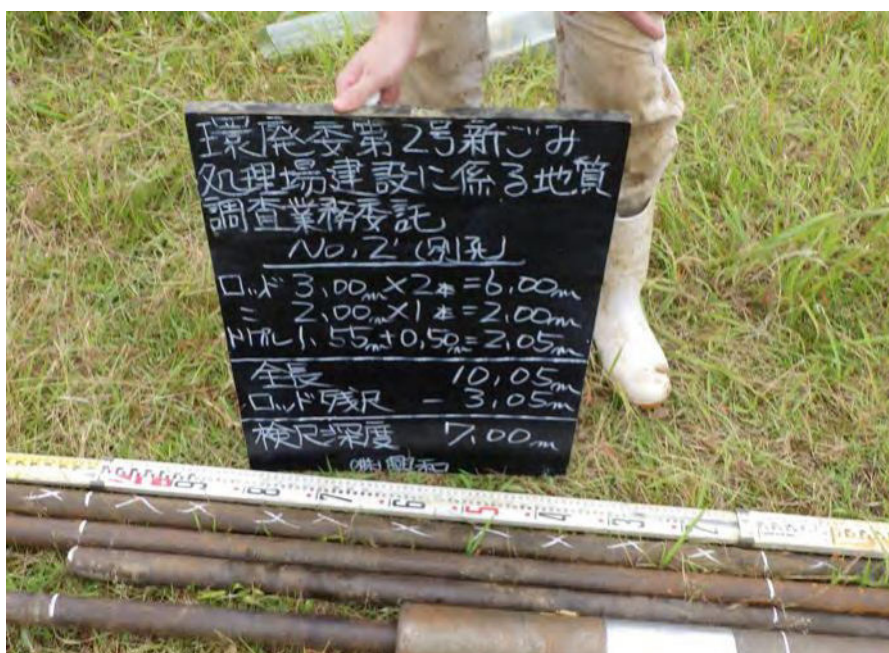 環廃委第2号新ごみ
処理場建設に係る地質
調査業務委託
No.2' (別孔)
ロッド 3.00m×2本=6.00m
〃 2.00m×1本=2.00m
トリプル 1.55m+0.50m=2.05m
全長 10.05m
ロッド残尺 - 3.05m
検尺深度 7.00m
㈱興和
9 8 7 6 5 4 3 2